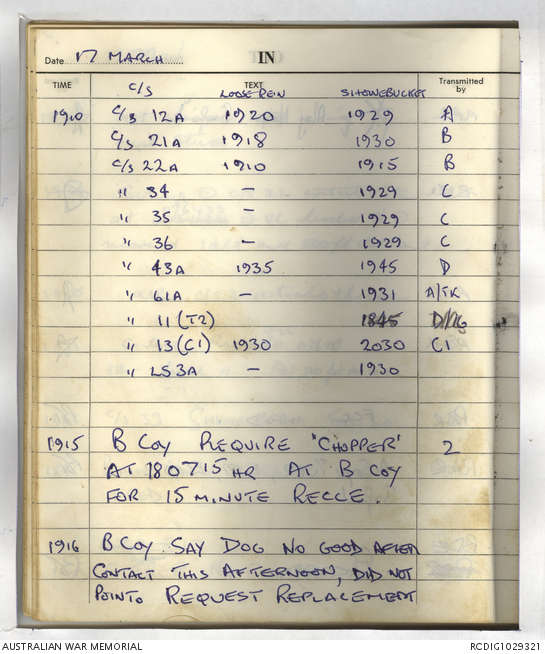 Date 17 MARCH IN
TIME C/S TEXT LOOSE REIN SHOWEBUCKET Transmitted by
1910 C/S 12A 1920 1929 A
C/S 21A 1918 1930 B
C/S 22A 1910 1915 B
" 34 - 1929 C
" 35 - 1929 C
" 36 - 1929 C
" 43A 1935 1945 D
" 61A - 1931 A/TK
" 11 (T2) 1845
" 13 (C1) 1930 2030 C1
" LS3A - 1930
1915 B COY REQUIRE 'CHOPPER' 2
AT 180715 HR AT B COY
FOR 15 MINUTE RECCE.
1916 B COY SAY DOG NO GOOD AFTER
CONTACT THIS AFTERNOON, DID NOT
POINT. REQUEST REPLACEMENT
AUSTRALIAN WAR MEMORIAL RCDIG1029321